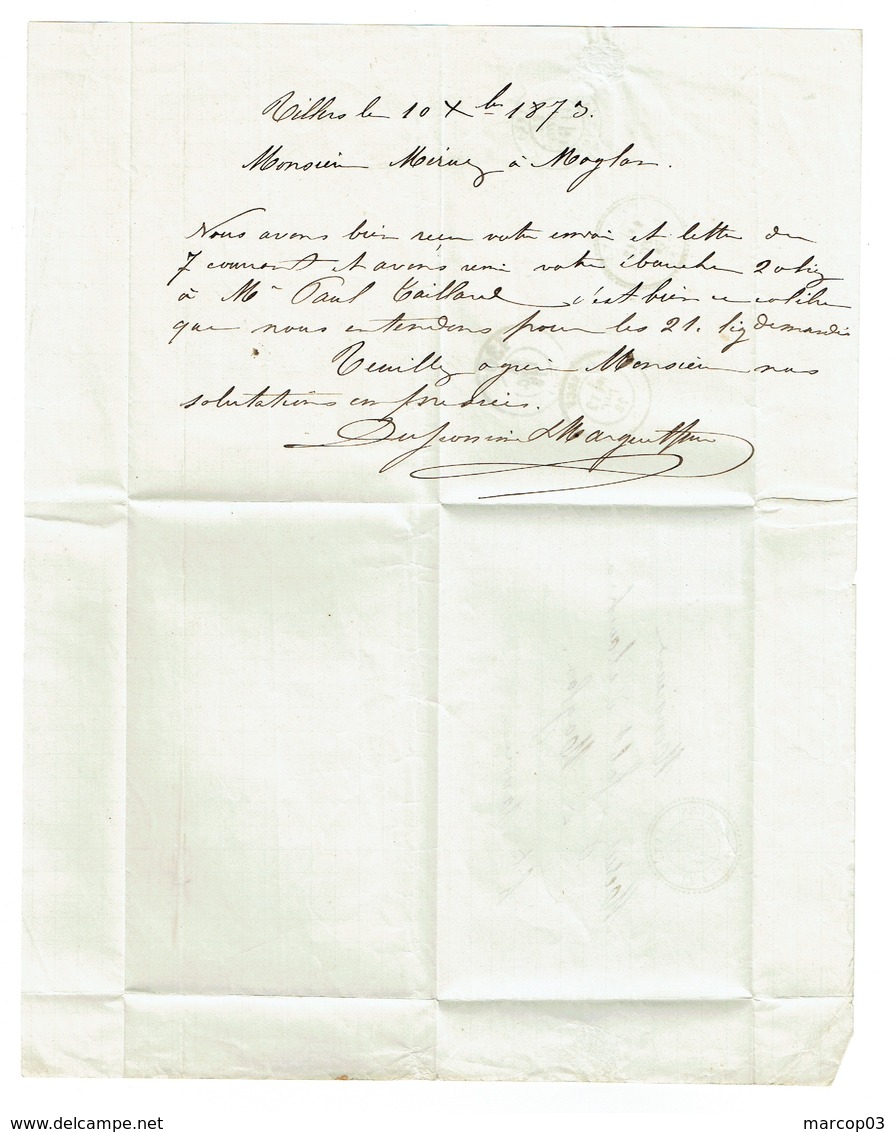 Villers le 10 Xbre 1873.
Monsieur à Maglan.
Nous avons bien reçu votre envoi et lettre du
7 courant et avons remi votre ébauche 20 lig
à Mr Paul Taillard c'est bien ce calibre
que nous entendons pour les 21. lig demandé
Veuillez agréer Monsieur nos
salutations empressées.
marcop03